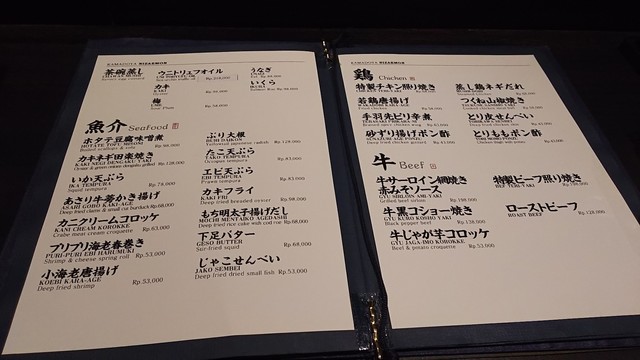 KAMAGOYA HISAEMON
茶碗蒸し
ウニトリュフオイル
うなぎ
カキ
KAKI
いくら
IKURA
梅
UME
魚介 Seafood
ホタテ豆腐味噌煮
HOTATE TOFU MISONI
Boiled scallops & tofu
Rp.98,000
カキネギ田楽焼き
KAKI NEGI DENGAKU YAKI
Rp.128,000
いか天ぷら
IKA TEMPURA
Squid tempura
Rp.78,000
あさり牛蒡かき揚げ
ASARI GOBO KAKI-AGE
Deep fried clams & small cut burdock Rp.68,000
カニクリームコロッケ
KANI CREAM KOROKKE
Crabe meat cream croquette Rp.63,000
プリプリ海老春巻き
PURI-PURI EBI HARUMUKI
Shrimp & cheese spring roll Rp.53,000
小海老唐揚げ
KOEBI KARA-AGE Rp.53,000
Deep fried shrimp
ぶり大根
BURI DAIKON
Yellowtail japanese radish Rp.128,000
たこ天ぷら
TAKO TEMPURA
Octopus tempura Rp.83,000
エビ天ぷら
EBI TEMPURA
Prawn tempura Rp.83,000
カキフライ
KAKI FRI
Deep fried breaded oyster Rp.98,000
もち明太子揚げだし
MOCHI MENTAIKO AGEDASHI
Deep fried rice cake with cod roe Rp.68,000
下足バター
GESO BUTTER
Stir-fried squid Rp.68,000
じゃこせんべい
JAKO SEMBEI
Deep fried dried small fish Rp.53,000
KAMAGOYA HISAEMON
鶏 Chicken
特製チキン照り焼き
若鶏唐揚げ
手羽先ピリ辛煮
砂ずり揚げポン酢
蒸し鶏ネギだれ
つくね山椒焼き
とり皮せんべい
とりももポン酢
牛 Beef
牛サーロイン網焼き
赤みそソース
GYU SIRLOIN AMI-YAKI
Grilled beef sirloin Rp.198,000
牛黒コショー焼き
GYU KURO KOSHO YAKI
Black pepper beef Rp.128,000
牛じゃが芋コロッケ
GYU JAGA-IMO KOROKKE
Beef & potato croquette Rp.53,000
特製ビーフ照り焼き
BEEF TERI-YAKI
ローストビーフ
ROAST BEEF Rp.128,000